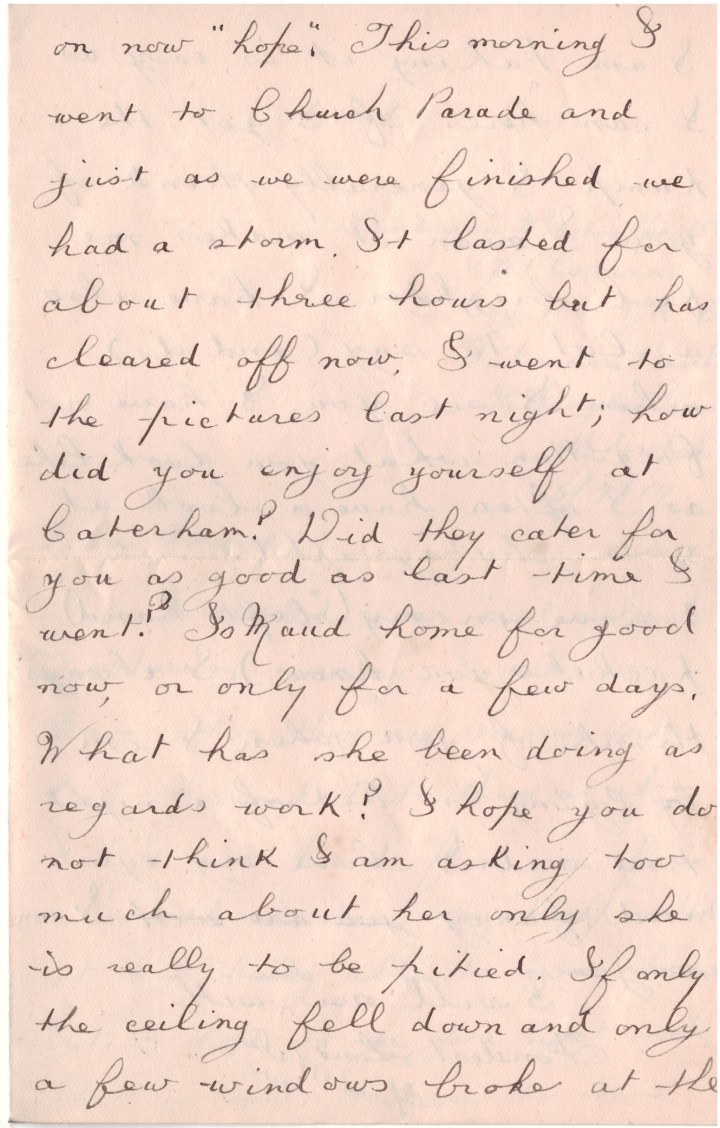 on now "hope". This morning I
went to Church Parade and
just as we were finished we
had a storm. It lasted for
about three hours but has
cleared off now. I went to
the pictures last night; how
did you enjoy yourself at
Caterham? Did they cater for
you as good as last time I
went!? Is Maud home for good
now, or only for a few days.
What has she been doing as
regards work? I hope you do
not think I am asking too
much about her only she
is really to be pitied. If only
the ceiling fell down and only
a few windows broke at the